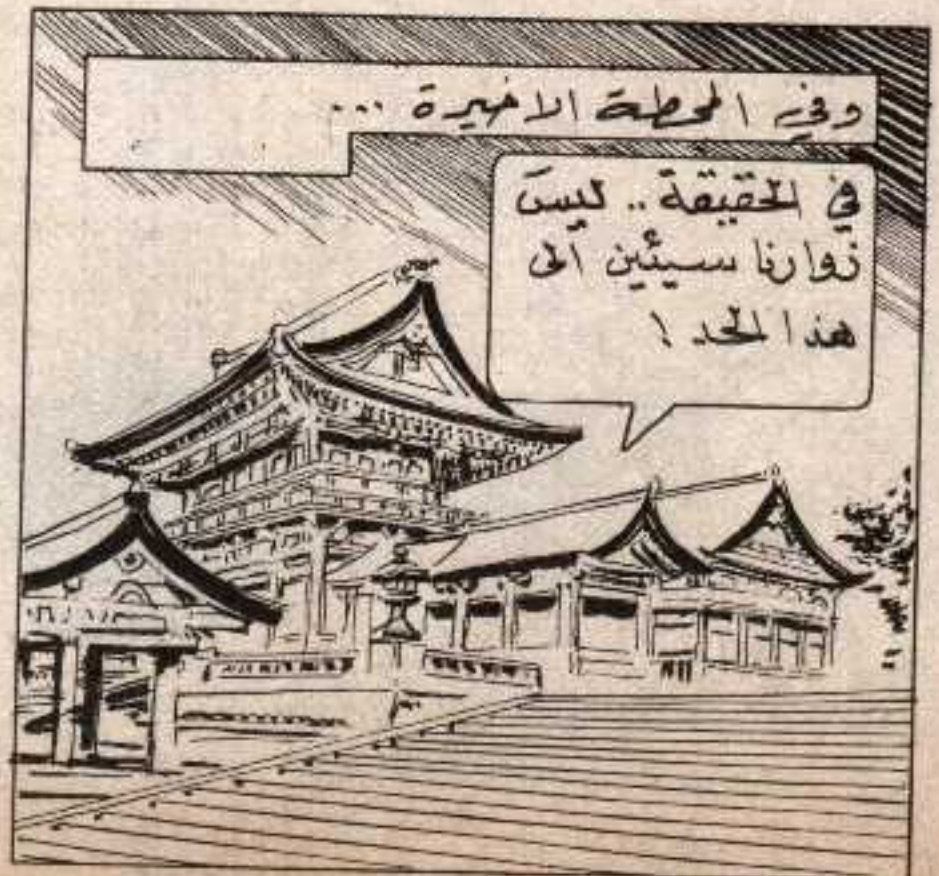 وفي المحطة الاخيرة ...
في الحقيقة .. ليسَ
زوارنا سيئين الى
هذا الحد !